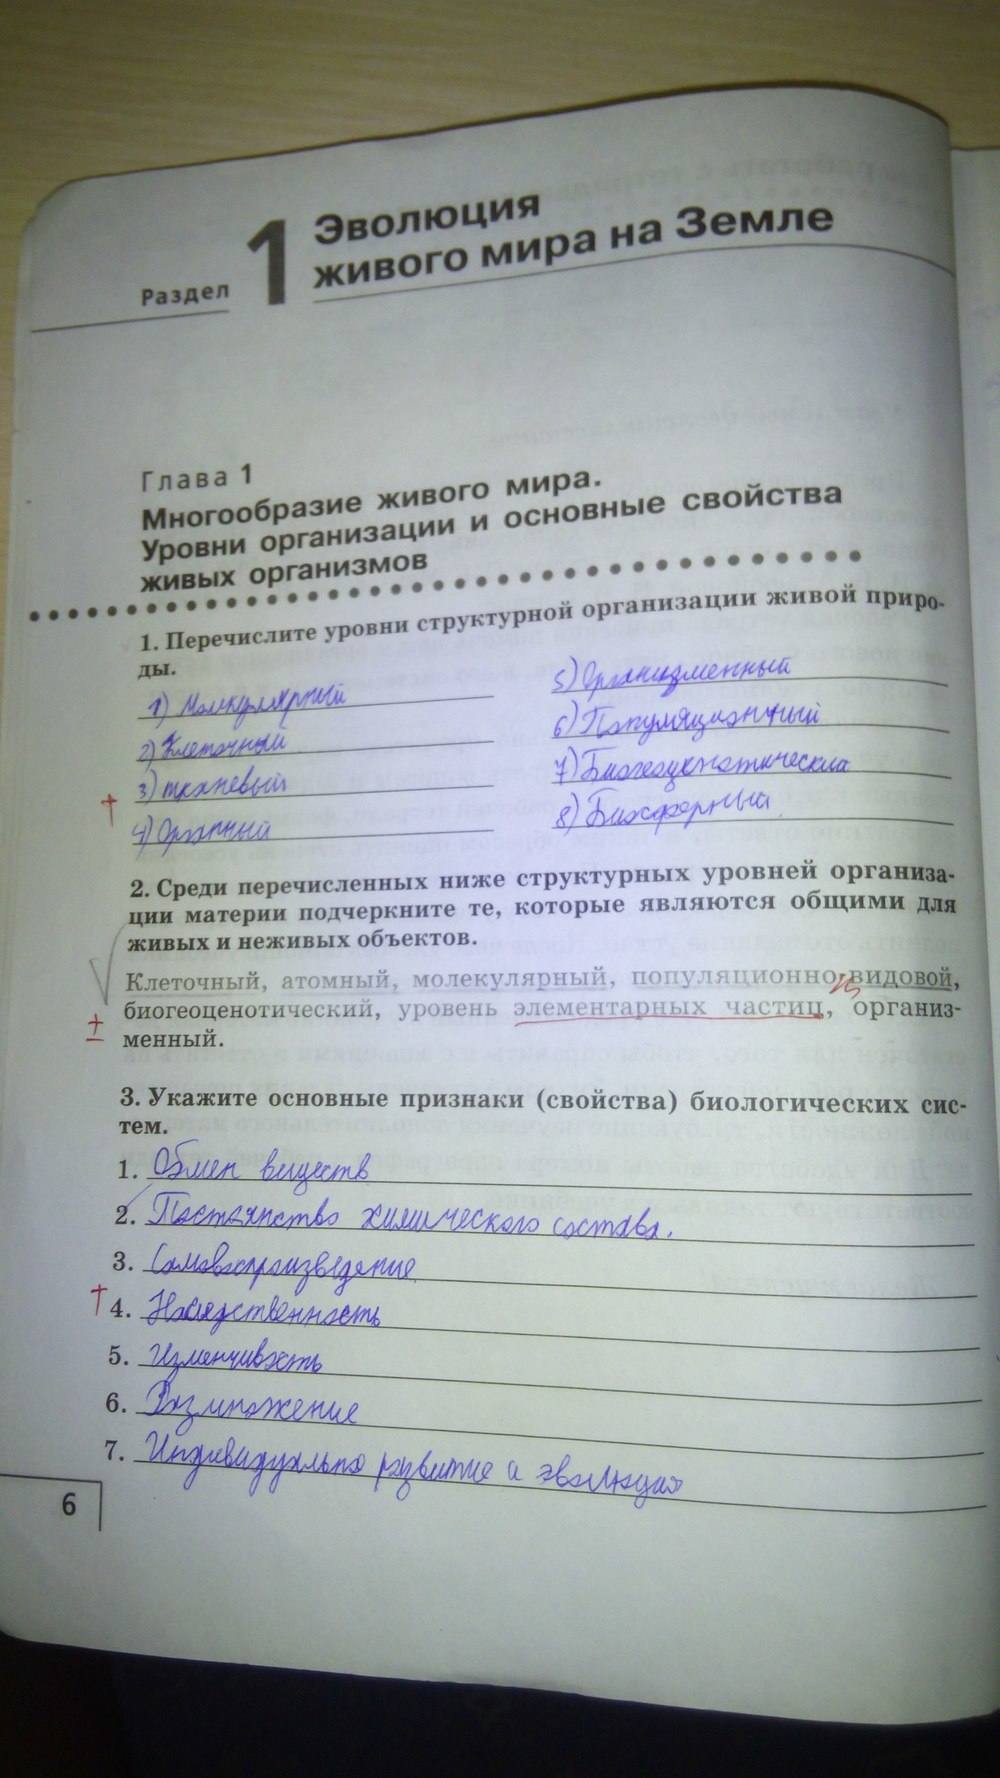 Раздел 1
Эволюция
живого мира на Земле
Глава 1
Многообразие живого мира.
Уровни организации и основные свойства
живых организмов
1. Перечислите уровни структурной организации живой приро-
ды.
1) Молекулярный
2) Клеточный
3) тканевый
4) Органный
5) Организменный
6) Популяционный
7) Биогеоценотический
8) Биосферный
2. Среди перечисленных ниже структурных уровней организа-
ции материи подчеркните те, которые являются общими для
живых и неживых объектов.
Клеточный, атомный, молекулярный, популяционно-видовой,
биогеоценотический, уровень элементарных частиц, организ-
менный.
3. Укажите основные признаки (свойства) биологических сис-
тем.
1. Обмен веществ
2. Постоянство химического состава.
3. Самовоспроизведение
4. Наследственность
5. Изменчивость
6. Размножение
7. Индивидуально развитие и эволюция
6